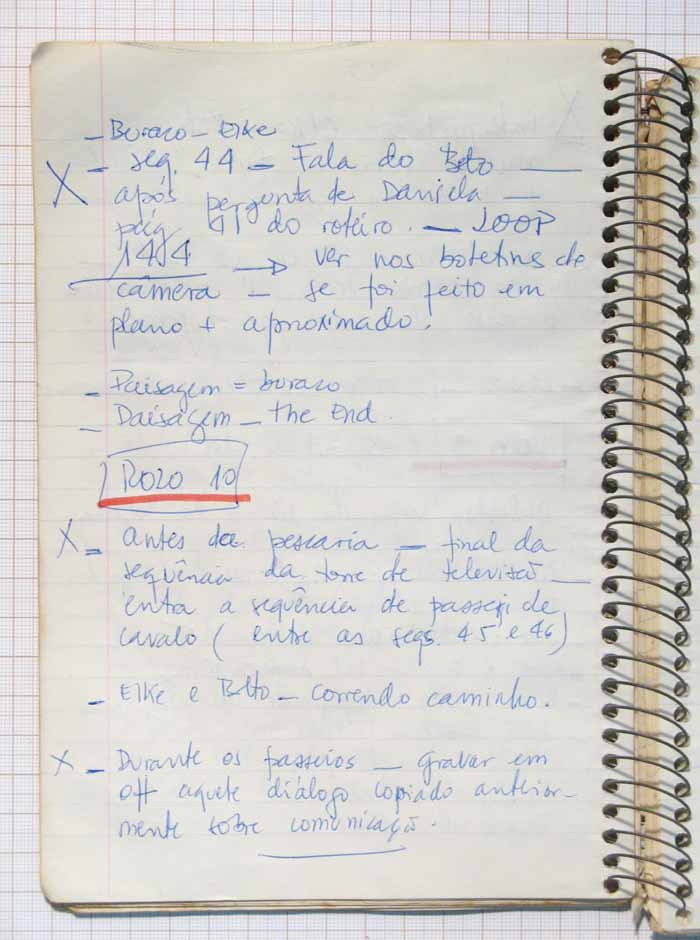 – Buraco – Elke
X – seq. 44 – Fala do Beto —
após pergunta de Daniela —
pág. 41 do roteiro. — LOOP
14,4 → ver nos boletins de
câmera – se foi feito em
plano + aproximado.
– Paisagem = buraco
– Paisagem – the End.
Rolo 10
X – antes da pescaria – final da
sequência da torre de televisão —
entra a sequência de passeio de
cavalo (entre as seqs. 45 e 46)
– Elke e Beto – correndo caminho.
X – Durante os passeios – Gravar em
off aquele diálogo copiado anterior-
mente sobre comunicação.